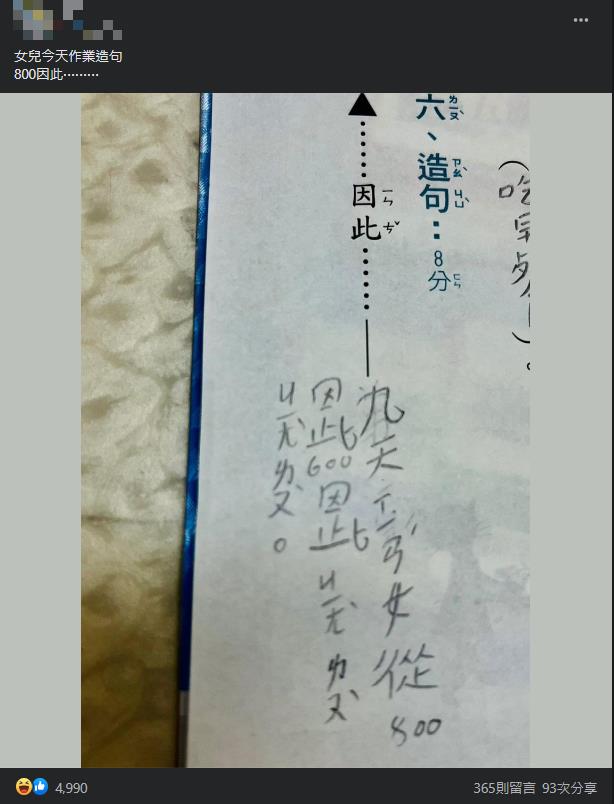 女兒今天作業造句
800因此………
六、造句：8分
ㄌㄧㄡˋ ㄗㄠˋ ㄐㄩˋ ㄈㄣ
▲……因此……
ㄧㄣ ㄘˇ
九天女從800
因此600因此ㄐㄧㄤˋㄌㄡˋ
ㄐㄧㄤˋㄌㄡˋ。
4,990
365則留言 93次分享